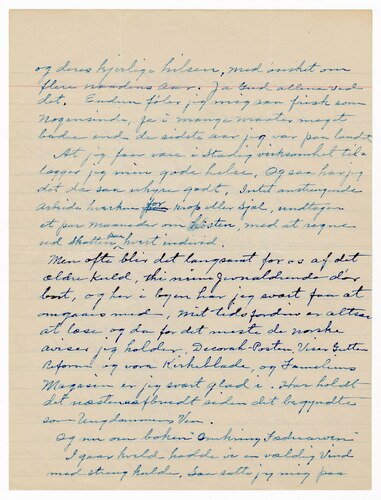 og deres kjerlige hilsen, med ønsket om
flere naadens aar. Ja Gud allene ved
det. Endnu føler jeg mig saa frisk som
Nogensinde, Ja i mange maater meget
bedre end de sidste aar jeg var paa landet
At jeg faar være i Stadig virksomhet til-
legger jeg min gode helse, Og saa har jeg
det da saa uhyre godt, Intet anstrengende
Arbeide hverken for krop eller sjel, undtagen
et par maaneder om høsten, med at regne
ud Skatten paa hvert individ.
Men ofte blir det langsomt for os af det
ældre kuld, thi mine jevnaldrende dør
bort, og her i byen har jeg svært faa at
omgaaes med, Mit tidsfordriv er altsaa
at læse og da for det meste de norske
aviser jeg holder, Decorah-Posten, Visergutten
Reform og vore Kirkeblade, og Familiens
Magasin er jeg svært glad i. Har holdt
det næsten uafbrudt siden det begyndte
som Ungdommens Ven.
Og nu om boken "Omkring Fædrearven"
I gaar kveld hadde vi en vældig Vind
med streng kulde, Saa satte jeg mig paa